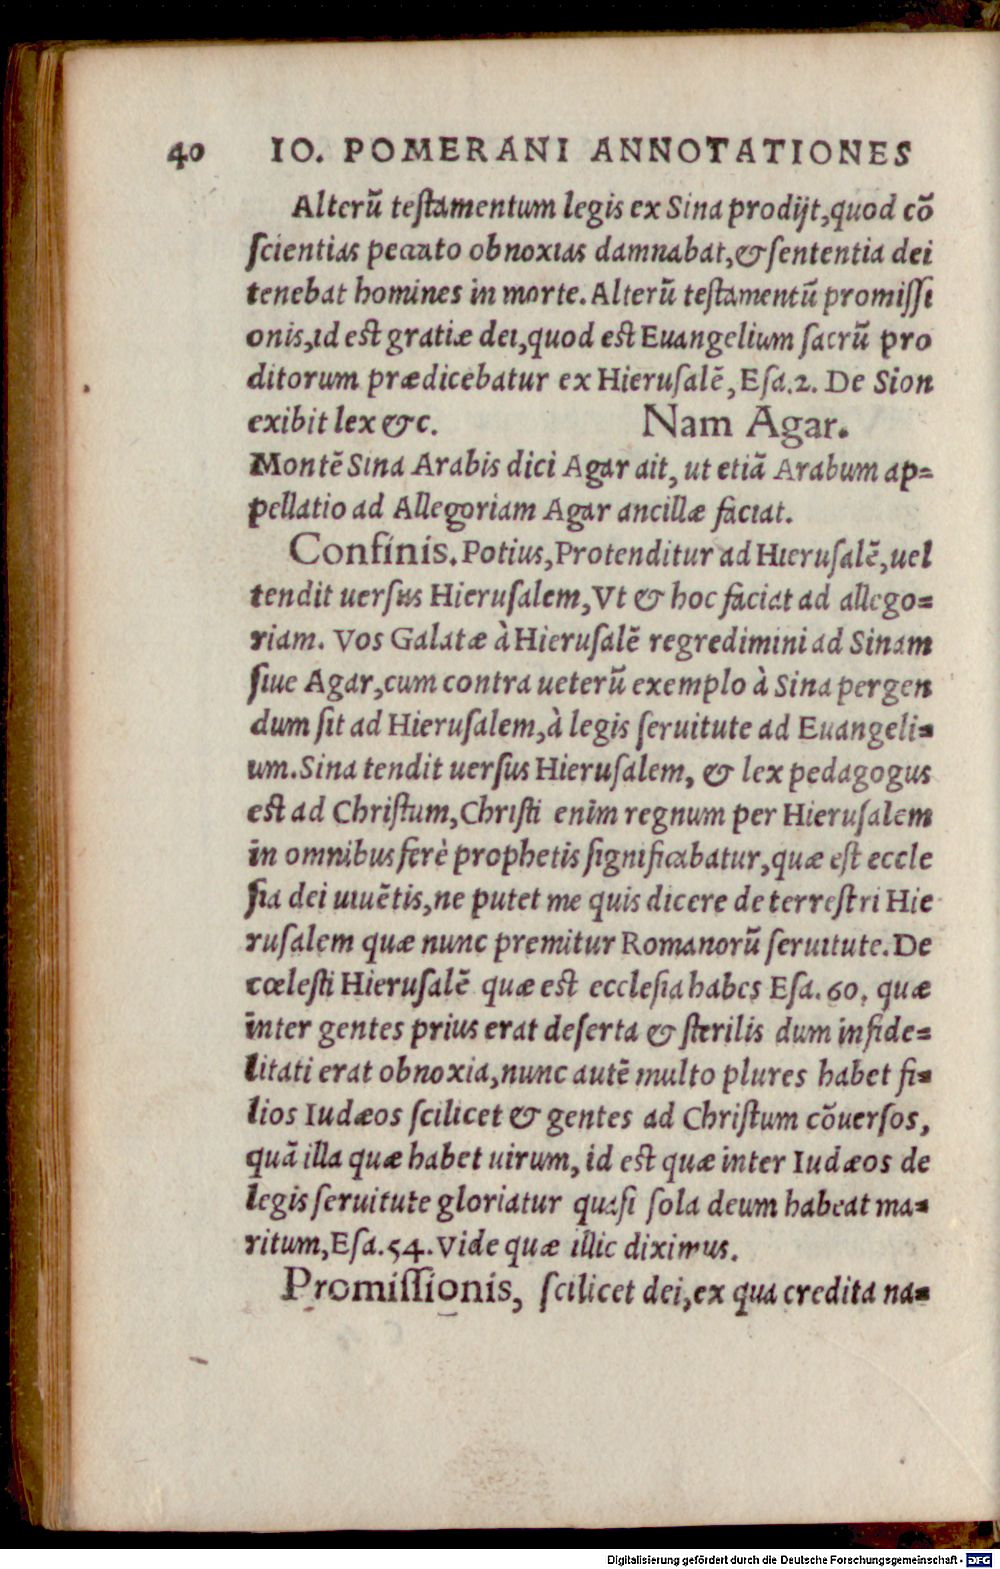 40 IO. POMERANI ANNOTATIONES
Alterũ teſtamentum legis ex Sina prodijt, quod cõ
ſcientias peccato obnoxias damnabat, & ſententia dei
tenebat homines in morte. Alterũ teſtamentũ promiſſi
onis, id eſt gratiæ dei, quod eſt Euangelium ſacrũ pro
ditorum prædicebatur ex Hieruſalẽ, Eſa. 2. De Sion
exibit lex &c. Nam Agar.
Montẽ Sina Arabis dici Agar ait, ut etiã Arabum ap=
pellatio ad Allegoriam Agar ancillæ faciat.
Confinis. Potius, Protenditur ad Hieruſalẽ, uel
tendit uerſus Hieruſalem, Vt & hoc faciat ad allego=
riam. Vos Galatæ à Hieruſalẽ regredimini ad Sinam
ſiue Agar, cum contra ueterũ exemplo à Sina pergen
dum ſit ad Hieruſalem, à legis ſeruitute ad Euangeli=
um. Sina tendit uerſus Hieruſalem, & lex pedagogus
eſt ad Chriſtum, Chriſti enim regnum per Hieruſalem
in omnibus ferè prophetis ſignificabatur, quæ eſt eccle
ſia dei uiuẽtis, ne putet me quis dicere de terreſtri Hie
ruſalem quæ nunc premitur Romanorũ ſeruitute. De
cœleſti Hieruſalẽ quæ eſt eccleſia habes Eſa. 60. quæ
inter gentes prius erat deſerta & ſterilis dum infide=
litati erat obnoxia, nunc autẽ multo plures habet fi=
lios Iudæos ſcilicet & gentes ad Chriſtum cõuerſos,
quã illa quæ habet uirum, id eſt quæ inter Iudæos de
legis ſeruitute gloriatur quaſi ſola deum habeat ma=
ritum, Eſa. 54. Vide quæ illic diximus.
Promiſſionis, ſcilicet dei, ex qua credita na=
Digitalisierung gefördert durch die Deutsche Forschungsgemeinschaft - DFG